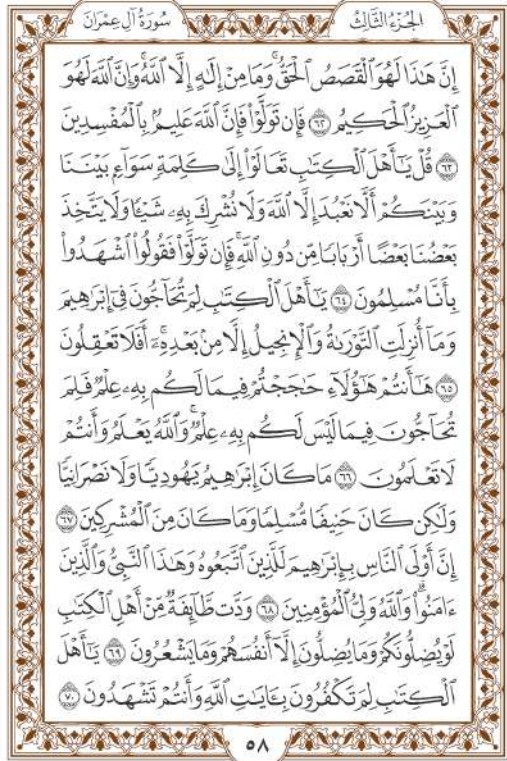 سُورَةُ آلِ عِمْرَانَ
الجُزءُ الثَّالِثُ
إِنَّ هَٰذَا لَهُوَ ٱلْقَصَصُ ٱلْحَقُّ ۚ وَمَا مِنْ إِلَٰهٍ إِلَّا ٱللَّهُ ۚ وَإِنَّ ٱللَّهَ لَهُوَ
ٱلْعَزِيزُ ٱلْحَكِيمُ ٦٢ فَإِن تَوَلَّوْا۟ فَإِنَّ ٱللَّهَ عَلِيمٌۢ بِٱلْمُفْسِدِينَ
٦٣ قُلْ يَٰٓأَهْلَ ٱلْكِتَٰبِ تَعَالَوْا۟ إِلَىٰ كَلِمَةٍ سَوَآءٍۭ بَيْنَنَا
وَبَيْنَكُمْ أَلَّا نَعْبُدَ إِلَّا ٱللَّهَ وَلَا نُشْرِكَ بِهِۦ شَيْـًٔا وَلَا يَتَّخِذَ
بَعْضُنَا بَعْضًا أَرْبَابًا مِّن دُونِ ٱللَّهِ ۚ فَإِن تَوَلَّوْا۟ فَقُولُوا۟ ٱشْهَدُوا۟
بِأَنَّا مُسْلِمُونَ ٦٤ يَٰٓأَهْلَ ٱلْكِتَٰبِ لِمَ تُحَآجُّونَ فِىٓ إِبْرَٰهِيمَ
وَمَآ أُنزِلَتِ ٱلتَّوْرَىٰةُ وَٱلْإِنجِيلُ إِلَّا مِنۢ بَعْدِهِۦٓ ۚ أَفَلَا تَعْقِلُونَ
٦٥ هَٰٓأَنتُمْ هَٰٓؤُلَآءِ حَٰجَجْتُمْ فِيمَا لَكُم بِهِۦ عِلْمٌ فَلِمَ
تُحَآجُّونَ فِيمَا لَيْسَ لَكُم بِهِۦ عِلْمٌ ۚ وَٱللَّهُ يَعْلَمُ وَأَنتُمْ
لَا تَعْلَمُونَ ٦٦ مَا كَانَ إِبْرَٰهِيمُ يَهُودِيًّا وَلَا نَصْرَانِيًّا
وَلَٰكِن كَانَ حَنِيفًا مُّسْلِمًا وَمَا كَانَ مِنَ ٱلْمُشْرِكِينَ ٦٧
إِنَّ أَوْلَى ٱلنَّاسِ بِإِبْرَٰهِيمَ لَلَّذِينَ ٱتَّبَعُوهُ وَهَٰذَا ٱلنَّبِىُّ وَٱلَّذِينَ
ءَامَنُوا۟ ۗ وَٱللَّهُ وَلِىُّ ٱلْمُؤْمِنِينَ ٦٨ وَدَّت طَّآئِفَةٌ مِّنْ أَهْلِ ٱلْكِتَٰبِ
لَوْ يُضِلُّونَكُمْ وَمَا يُضِلُّونَ إِلَّآ أَنفُسَهُمْ وَمَا يَشْعُرُونَ ٦٩ يَٰٓأَهْلَ
ٱلْكِتَٰبِ لِمَ تَكْفُرُونَ بِـَٔايَٰتِ ٱللَّهِ وَأَنتُمْ تَشْهَدُونَ ٧٠
٥٨